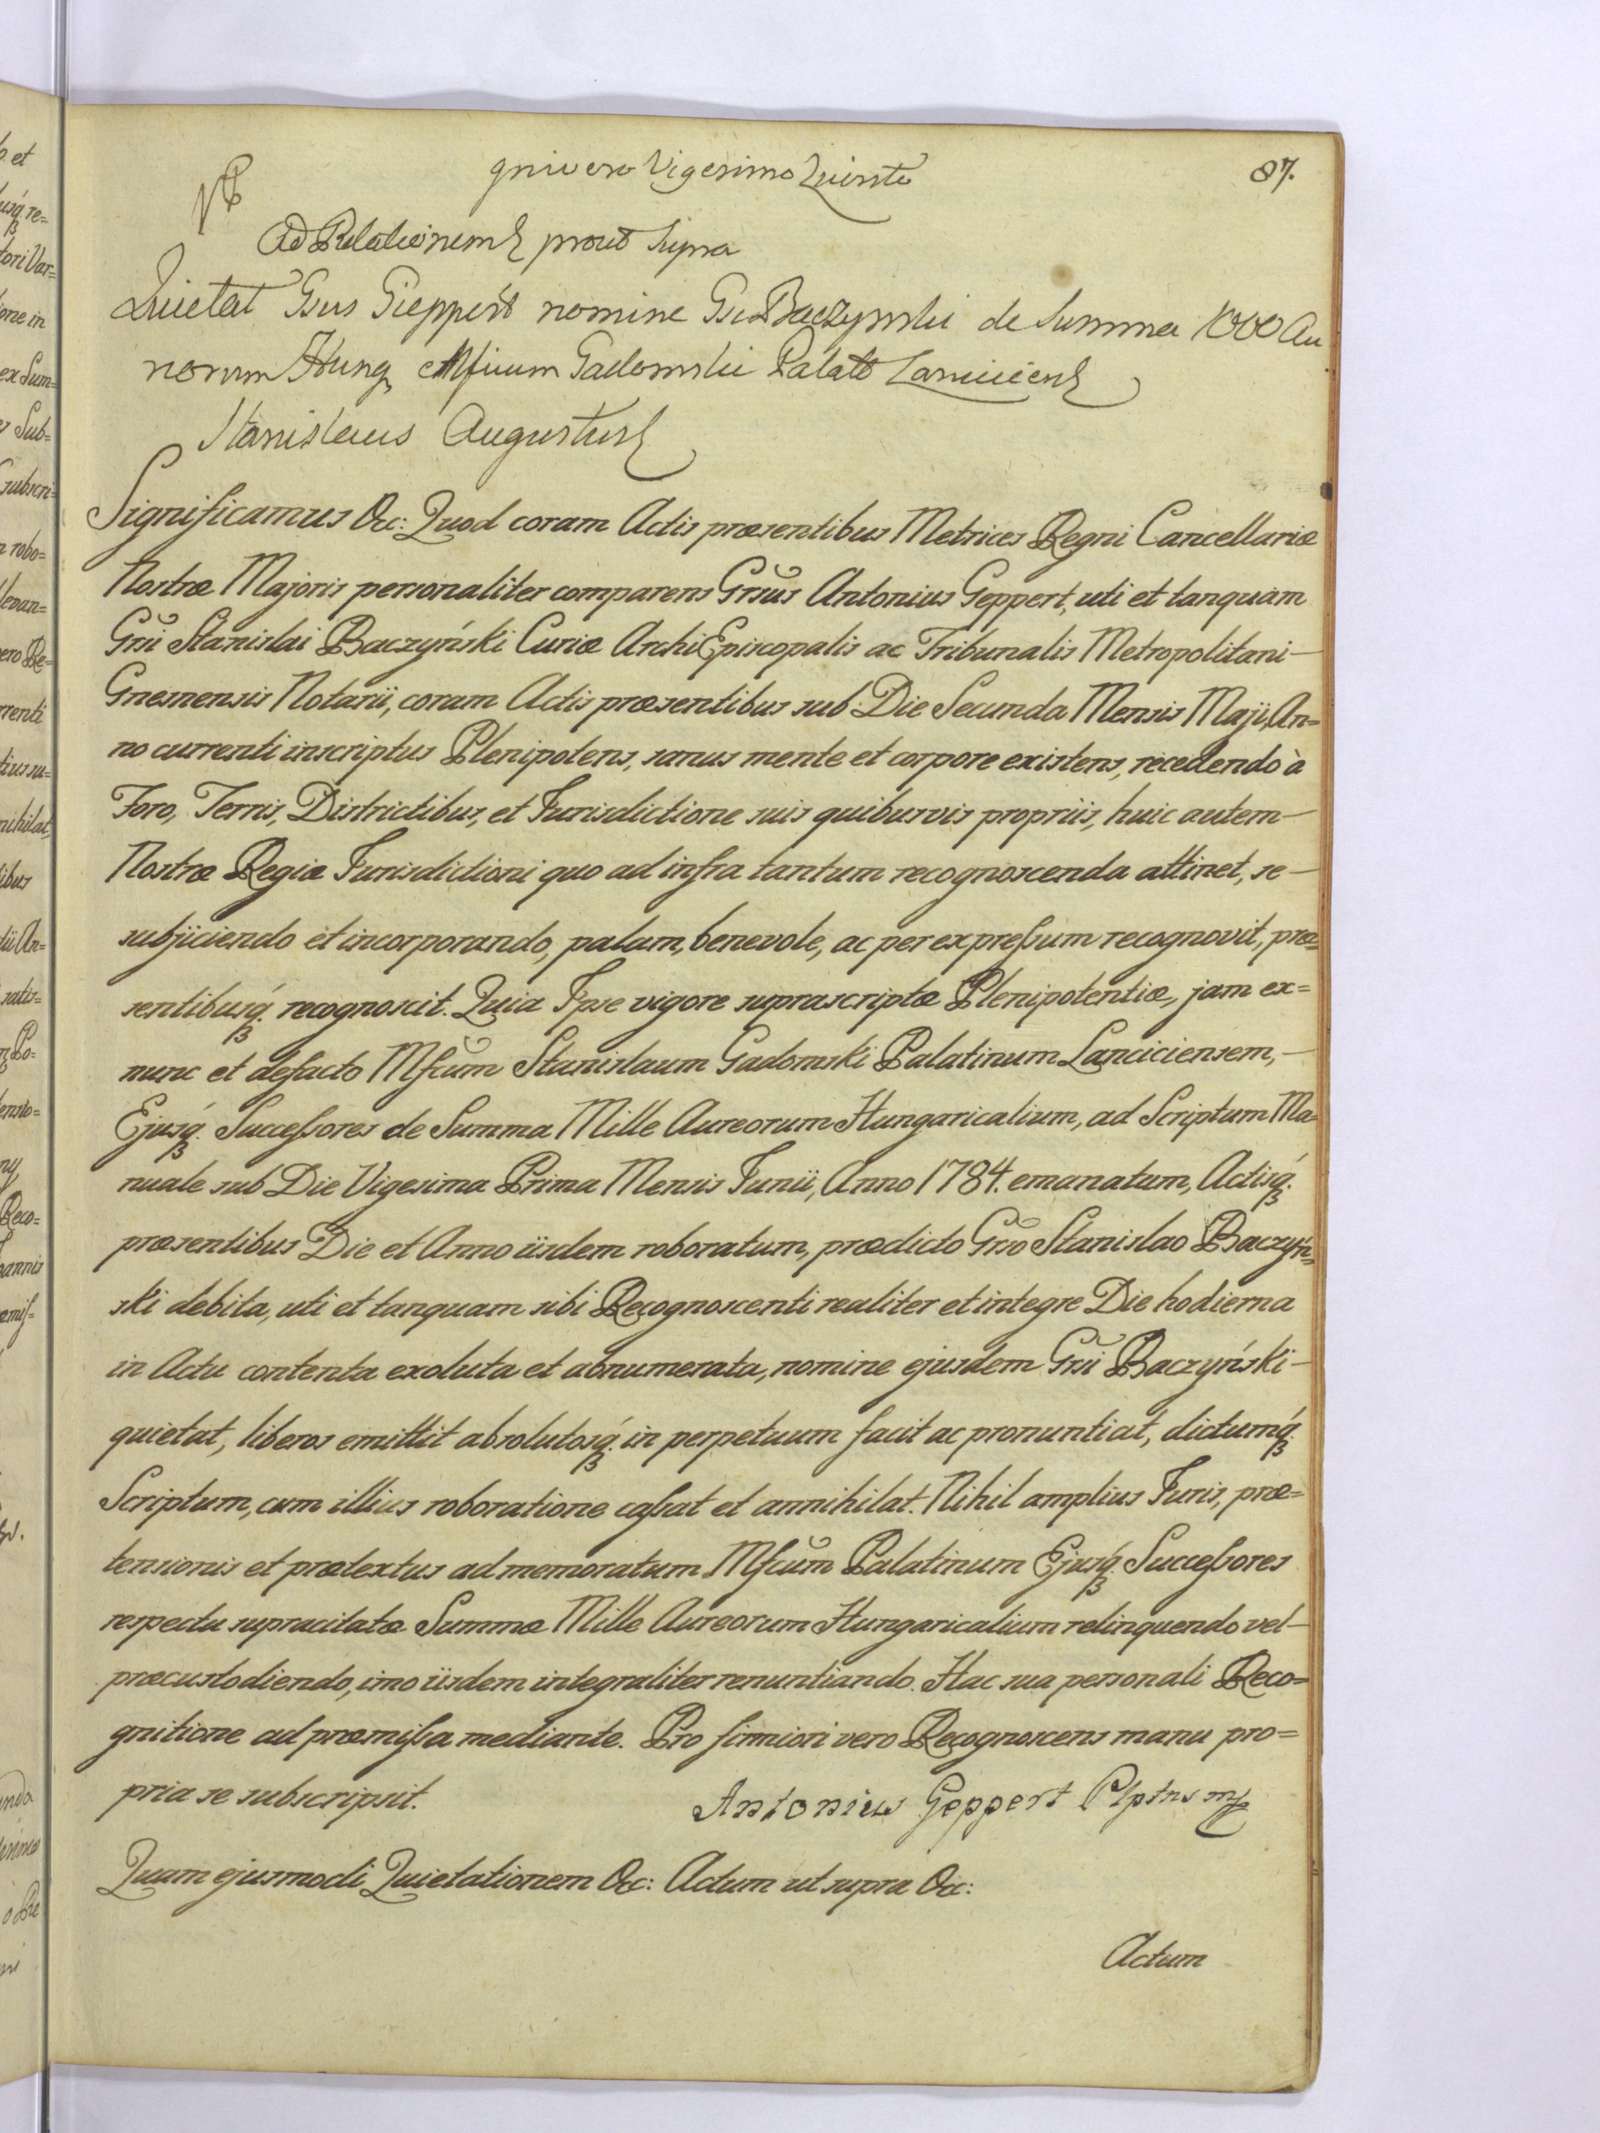 87.
gnivero Vigesimo Quinto
Ad Relationem prout supra
Quietat Gsus Gieppert nomine Gsi Baczynski de Summa 1000 Au
norum Hung Mficum Gadomski Palat Lanciciens
Stanislaus Augustus
Significamus &c: Quod coram Actis præsentibus Metrices Regni Cancellariæ
Nostræ Majoris personaliter comparens Grsus Antonius Geppert, uti et tanquam
Grsi Stanislai Baczyński Curiæ ArchiEpiscopalis ac Tribunalis Metropolitani
Gnesnensis Notarii, coram Actis præsentibus sub Die Secunda Mensis Maji, An=
no currenti inscriptus Plenipotens, sanus mente et corpore existens, recedendo à
Foro, Terris, Districtibus, et Jurisdictione suis quibusvis propriis, huic autem
Nostræ Regiæ Jurisdictioni quo ad infra tantum recognoscenda attinet, se
subjiciendo et incorporando, palam, benevole, ac per expressum recognovit, præ=
sentibusq́ recognoscit. Quia Ipse vigore suprascriptæ Plenipotentiæ, jam ex=
nunc et defacto Mfcum Stanislaum Gadomski Palatinum Lanciciensem,
Ejusq́. Successores de Summa Mille Aureorum Hungaricalium, ad Scriptum Ma=
nuale sub Die Vigesima Prima Mensis Junii, Anno 1784. emanatum, Actisq́.
præsentibus Die et Anno iisdem roboratum, prædicto Grso Stanislao Baczyń=
ski debita, uti et tanquam sibi Recognoscenti realiter et integre Die hodierna
in Actu contenta exoluta et abnumerata, nomine ejusdem Grsi Baczyński
quietat, liberos emittit absolutosq́. in perpetuum facit ac pronuntiat, dictumq́
Scriptum, cum illius roboratione cassat et annihilat. Nihil amplius Juris, præ=
tensionis et prætextus ad memoratum Mfcum Palatinum Ejusq́. Successores
respectu supracitatæ Summæ Mille Aureorum Hungaricalium relinquendo vel
præcustodiendo, imo iisdem integraliter renuntiando. Hac sua personali Reco=
gnitione ad præmissa mediante. Pro firmiori vero Recognoscens manu pro=
pria se subscripsit.
Antonius Geppert Plptns mp
Quam ejusmodi Quietationem &c: Actum ut supra &c:
Actum